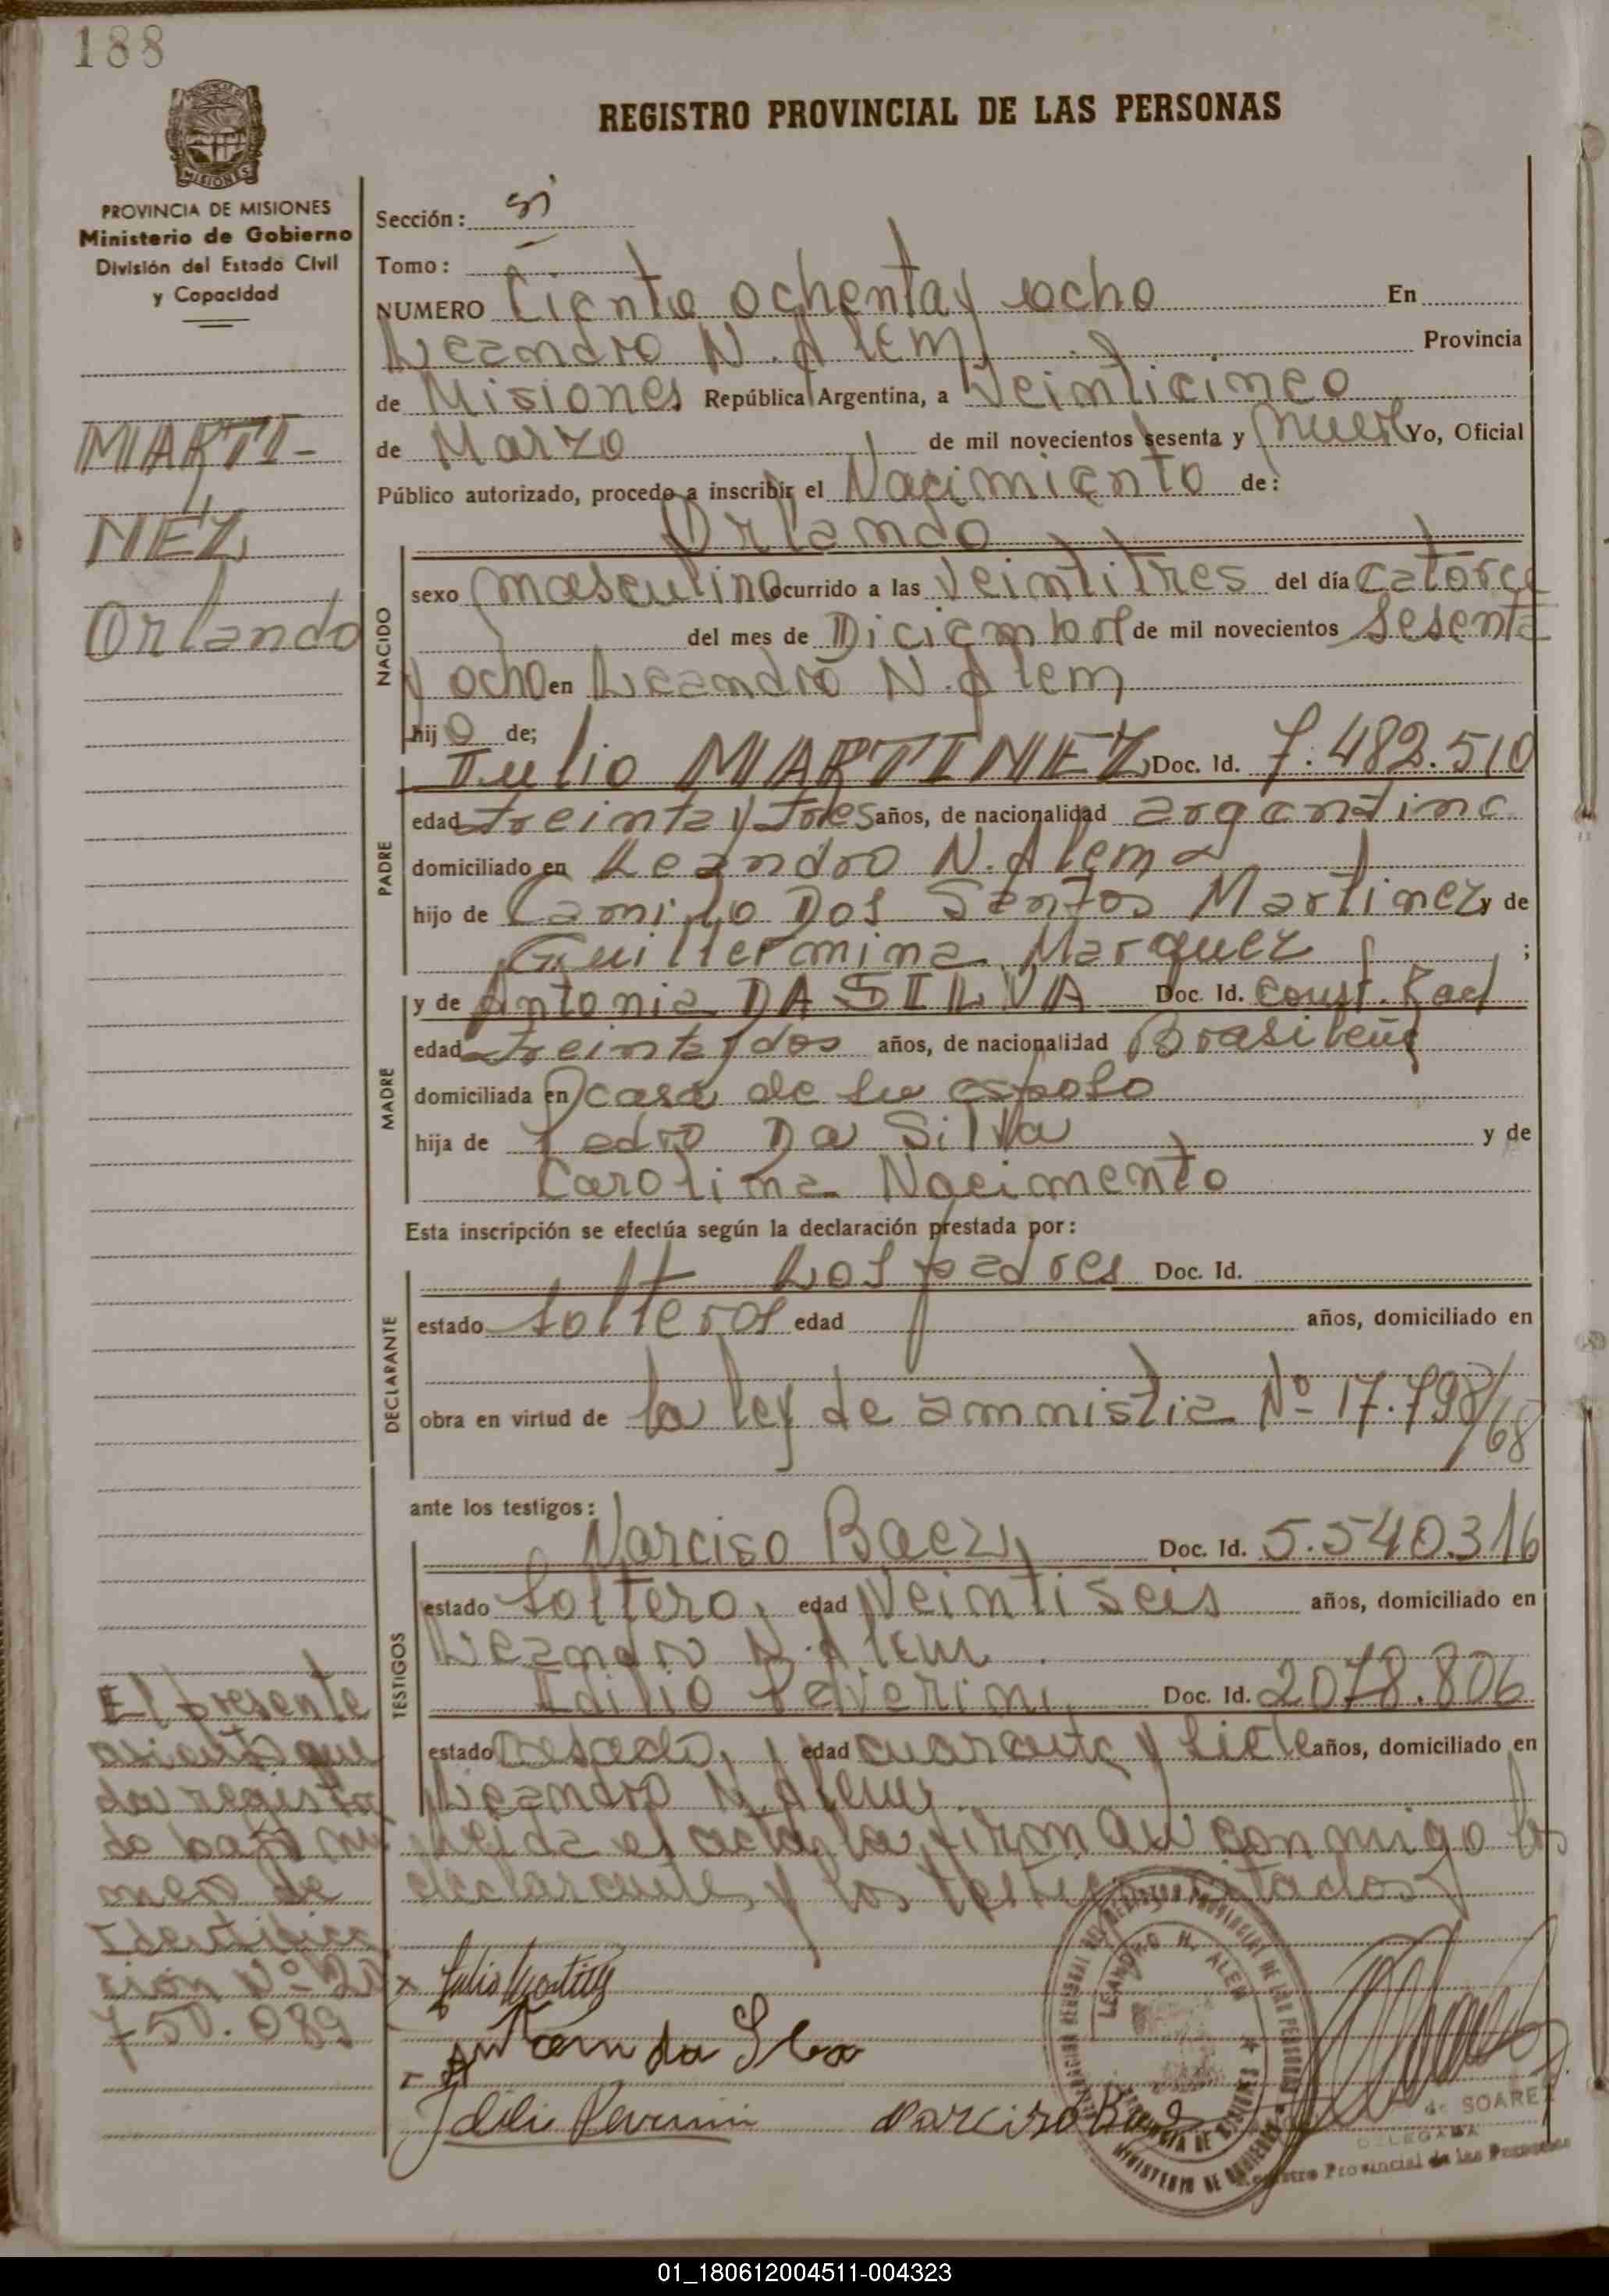 188
REGISTRO PROVINCIAL DE LAS PERSONAS
MISIONES
PROVINCIA DE MISIONES
Ministerio de Gobierno
División del Estado Civil
y Capacidad
MARTI-
NEZ,
Orlando
Sección:
Tomo:
NUMERO Ciento ochenta y ocho En
Leandro N. Alem, Provincia
de Misiones República Argentina, a Veinticinco
de Marzo de mil novecientos sesenta y nueve Yo, Oficial
Público autorizado, procedo a inscribir el Nacimiento de:
Orlando
NACIDO
sexo masculino ocurrido a las Veintitres del día catorce
del mes de Diciembre de mil novecientos Sesenta
y ocho en Leandro N. Alem
hijo de;
Iulio MARTINEZ Doc. Id. 7.482.510
PADRE
edad treinta y tres años, de nacionalidad argentina
domiciliado en Leandro N. Alem
hijo de Camilo Dos Santos Martinez y de
Guillermina Marquez ;
y de Antonia DA SILVA Doc. Id. const. Rad
MADRE
edad treinta y dos años, de nacionalidad Brasileña
domiciliada en casa de su esposo
hija de Pedro Da Silva y de
Carolina Nacimento
Esta inscripción se efectúa según la declaración prestada por:
Los padres Doc. Id.
DECLARANTE
estado solteros edad años, domiciliado en
obra en virtud de la ley de amnistia Nº 17.798/68
ante los testigos:
Narciso Baez, Doc. Id. 5.540.316
TESTIGOS
estado Soltero, edad Veintiseis años, domiciliado en
Leandro N. Alem
Idilio Peverini, Doc. Id. 2078.806
estado casado, edad cuarenta y siete años, domiciliado en
Leandro N. Alem
leida el acta, la firman conmigo los
declarante, y los testigos citados
El presente
asiento que
da registra
do bajo nú
mero de
Identifica
ción Nº 20
750.089
Julio Martinez
da Silva
Idilio Peverini Narciso Baez
LEANDRO N. ALEM
PROVINCIA DE MISIONES
MINISTERIO DE GOBIERNO
de SOAREZ
DELEGADA
Registro Provincial de las Personas
01_180612004511-004323